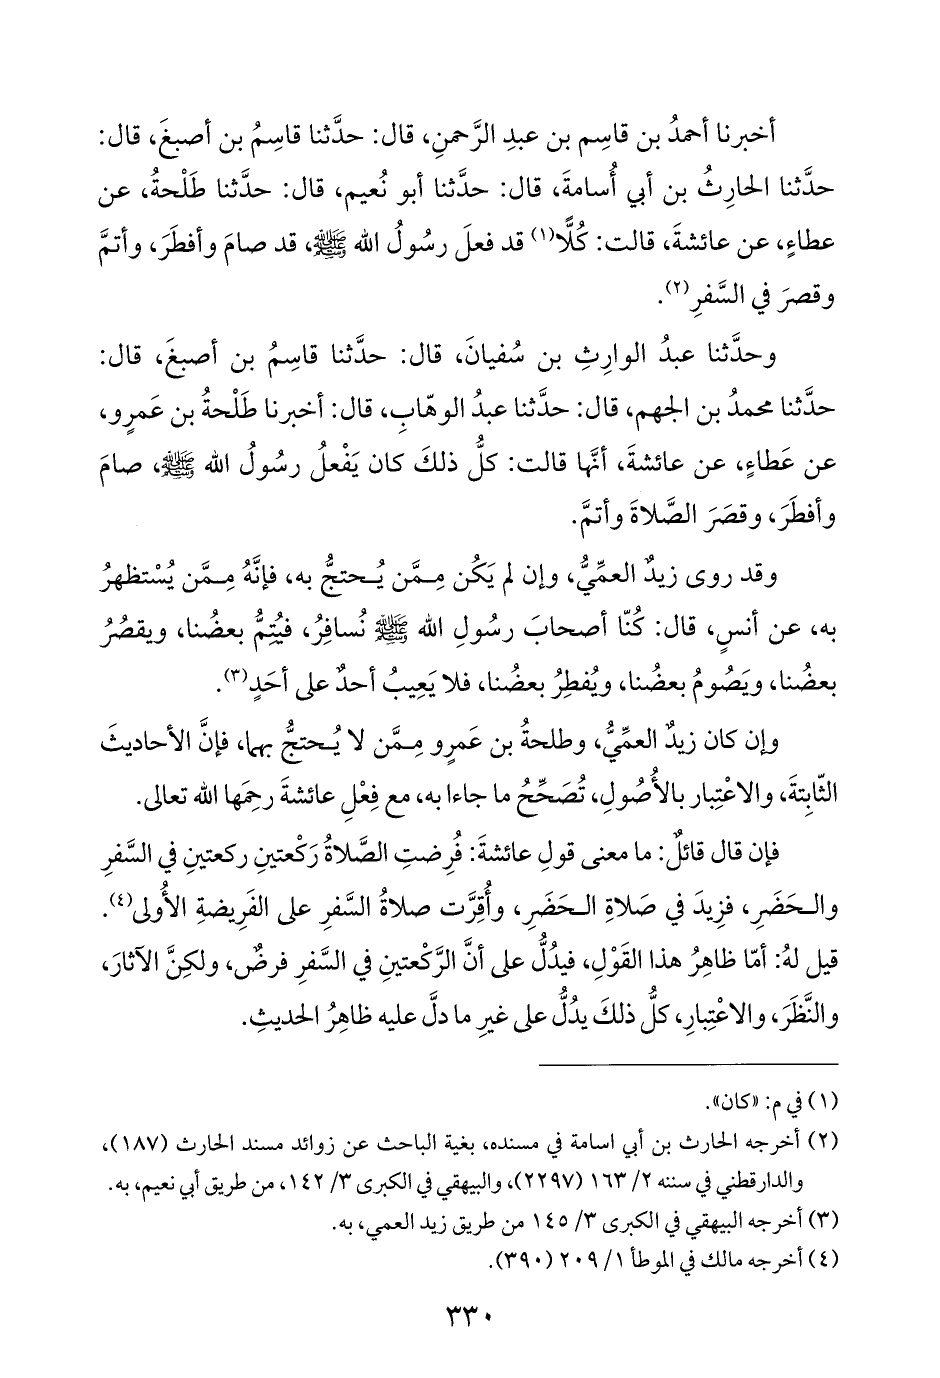 أخبرنا أحمدُ بن قاسِم بن عبدِ الرَّحمنِ، قال: حدَّثنا قاسِمُ بن أصبغَ، قال:
حدَّثنا الحارِثُ بن أبي أُسامةَ، قال: حدَّثنا أبو نُعيم، قال: حدَّثنا طَلْحةُ، عن
عطاءٍ، عن عائشةَ، قالت: كُلًّا(١) قد فعلَ رسُولُ الله ﷺ، قد صامَ وأفطَرَ، وأتمَّ
وقصرَ في السَّفرِ(٢).
وحدَّثنا عبدُ الوارِثِ بن سُفيانَ، قال: حدَّثنا قاسِمُ بن أصبغَ، قال:
حدَّثنا محمدُ بن الجهم، قال: حدَّثنا عبدُ الوهّابِ، قال: أخبرنا طَلْحةُ بن عَمرٍو،
عن عَطاءٍ، عن عائشةَ، أنَّها قالت: كلُّ ذلكَ كان يَفْعلُ رسُولُ الله ﷺ، صامَ
وأفطَرَ، وقصَرَ الصَّلاةَ وأتمَّ.
وقد روى زيدٌ العمِّيُّ، وإن لم يَكُن مِمَّن يُحتجُّ به، فإنَّهُ مِمَّن يُسْتظهرُ
به، عن أنسٍ، قال: كُنّا أصحابَ رسُولِ الله ﷺ نُسافِرُ، فيُتِمُّ بعضُنا، ويقصُرُ
بعضُنا، ويَصُومُ بعضُنا، ويُفطِرُ بعضُنا، فلا يَعِيبُ أحدٌ على أحَدٍ(٣).
وإن كان زيدٌ العمِّيُّ، وطلحةُ بن عَمرٍو مِمَّن لا يُحتجُّ بهما، فإنَّ الأحاديثَ
الثّابِتةَ، والاعْتِبار بالأُصُولِ، تُصَحِّحُ ما جاءا به، مع فِعْلِ عائشةَ رحِمَها الله تعالى.
فإن قال قائلٌ: ما معنى قولِ عائشةَ: فُرِضتِ الصَّلاةُ رَكْعتينِ ركعتينِ في السَّفرِ
والحَضَرِ، فزِيدَ في صَلاةِ الحَضَرِ، وأُقِرَّت صلاةُ السَّفرِ على الفَرِيضةِ الأُولى(٤).
قيل لهُ: أمّا ظاهِرُ هذا القَوْلِ، فيدُلُّ على أنَّ الرَّكْعتينِ في السَّفرِ فرضٌ، ولكِنَّ الآثارَ،
والنَّظَرَ، والاعْتِبارِ، كلُّ ذلكَ يدُلُّ على غيرِ ما دلَّ عليه ظاهِرُ الحديثِ.
(١) في م: «كان».
(٢) أخرجه الحارث بن أبي اسامة في مسنده، بغية الباحث عن زوائد مسند الحارث (١٨٧)،
والدارقطني في سننه ٢/ ١٦٣ (٢٢٩٧)، والبيهقي في الكبرى ٣/ ١٤٢، من طريق أبي نعيم، به.
(٣) أخرجه البيهقي في الكبرى ٣/ ١٤٥ من طريق زيد العمي، به.
(٤) أخرجه مالك في الموطأ ١/ ٢٠٩ (٣٩٠).
٣٣٠